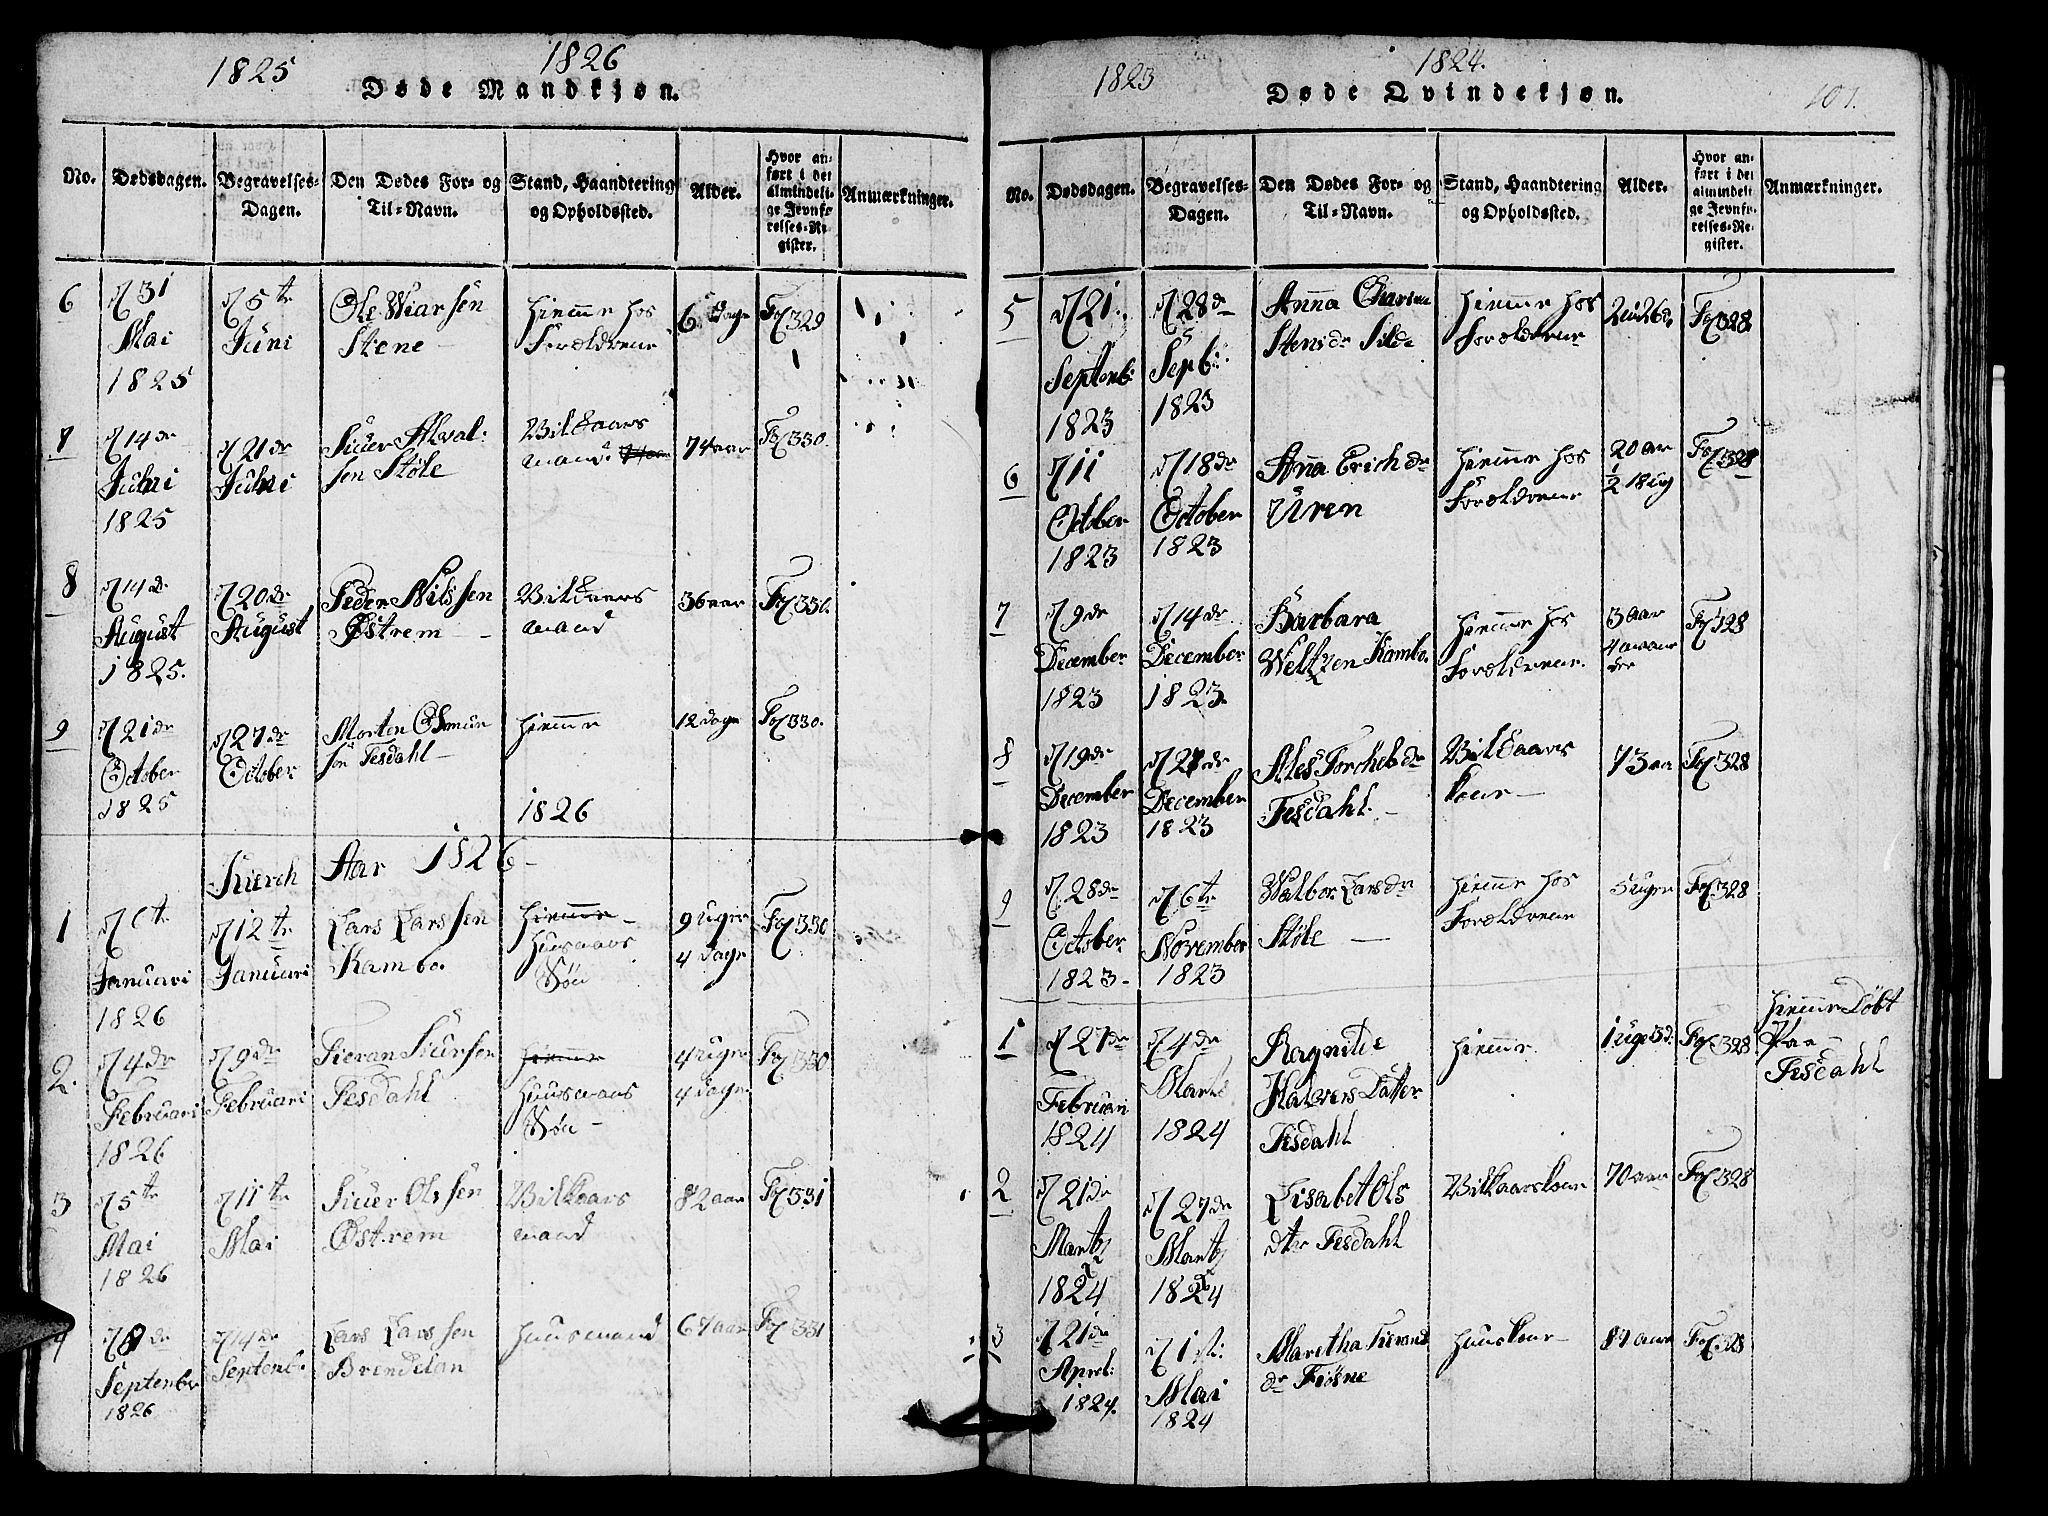 1825 1826
Døde Mandkjøn.
No. Dødsdagen. Begravelses-Dagen. Den Dødes For- og Til-Navn. Stand, Haandtering og Opholdssted. Alder. Hvor anført i det almindelige Jevnførelses-Register. Anmærkninger.
6 d 31 Mai 1825 d 5te Juni Ole Stene hiemme hos Forældrene 6 Dage Fol 329
7 d 14de Juni 1825 d 21de Juni Siuer Støle Vilkaars mand 74 aar Fol 330.
8 d 14de August 1825. d 20de August Peder Nilssen Østrem Vilkaars mand 36 aar Fol 330.
9 d 21de October 1825 d 27de October Morten Osmun sön Tesdahl hiemme 12 dage Fol 330.
1826
Kierch Aar 1826
1 d 6te Januari 1826 d 12te Januari Lars Larssen Kambo. hiemme Huusmans Sön 9 Uger 4 dage Fol 330
2. d 4de Februari 1826 d 9de Februari Tieran Siursen Tesdahl hiemme Huusmans Sön 4 Uger 4 dage Fol 330
3 d 5te Mai 1826 d 11te Mai Siuer Olssen Østrem Vilkaars mand 82 aar Fol 331
4 d 8de September 1826 d 14de Septemb. Lars Larssen Huusmand 67 aar Fol 331
1823 1824.
Døde Qvindekjøn. 101.
No. Dødsdagen. Begravelses-Dagen. Den Dødes For- og Til-Navn. Stand, Haandtering og Opholdssted. Alder. Hvor anført i det almindelige Jevnførelses-Register. Anmærkninger.
5 d 21. Septemb. 1823 d 28de Sepb: 1823 Anna Stensdr Silde hiemme hos Forældrene Fol 328
6 d 11 October 1823 d 18de October 1823 Anna Erichdr Uren hiemme hos Forældrene 20 aar Fol 328
7 d 9de December 1823 d 14de December 1823. Barbara Weltzen Kambo. hiemme hos Forældrene. 3 aar Fol 328
8 d 19de December 1823 d 27de December 1823 Ales Torchelsdr Tesdahl. Vilkaars kone 73 aar Fol 328
9 d 28de October 1823. d 6te November 1823 Walbor Larsdr Støle hiemme hos Forældrene 5 uger Fol 328
1 d 27de Februari 1824 d 4de Marts 1824 Ragnilde Halvers Datter Tesdahl hiemme. 1 uge 3 d. Fol 328 hiemme Døbt Paa Tesdahl
2 d 21de Marts 1824 d 27de Marts 1824 Lisabet Ols dter Tesdahl Vilkaarskone 70 aar Fol 328
3 d 21de Aprel: 1824. d 1st: Mai 1824 Maretha Tierands dr Fiösne Huuskone 87 aar Fol 328